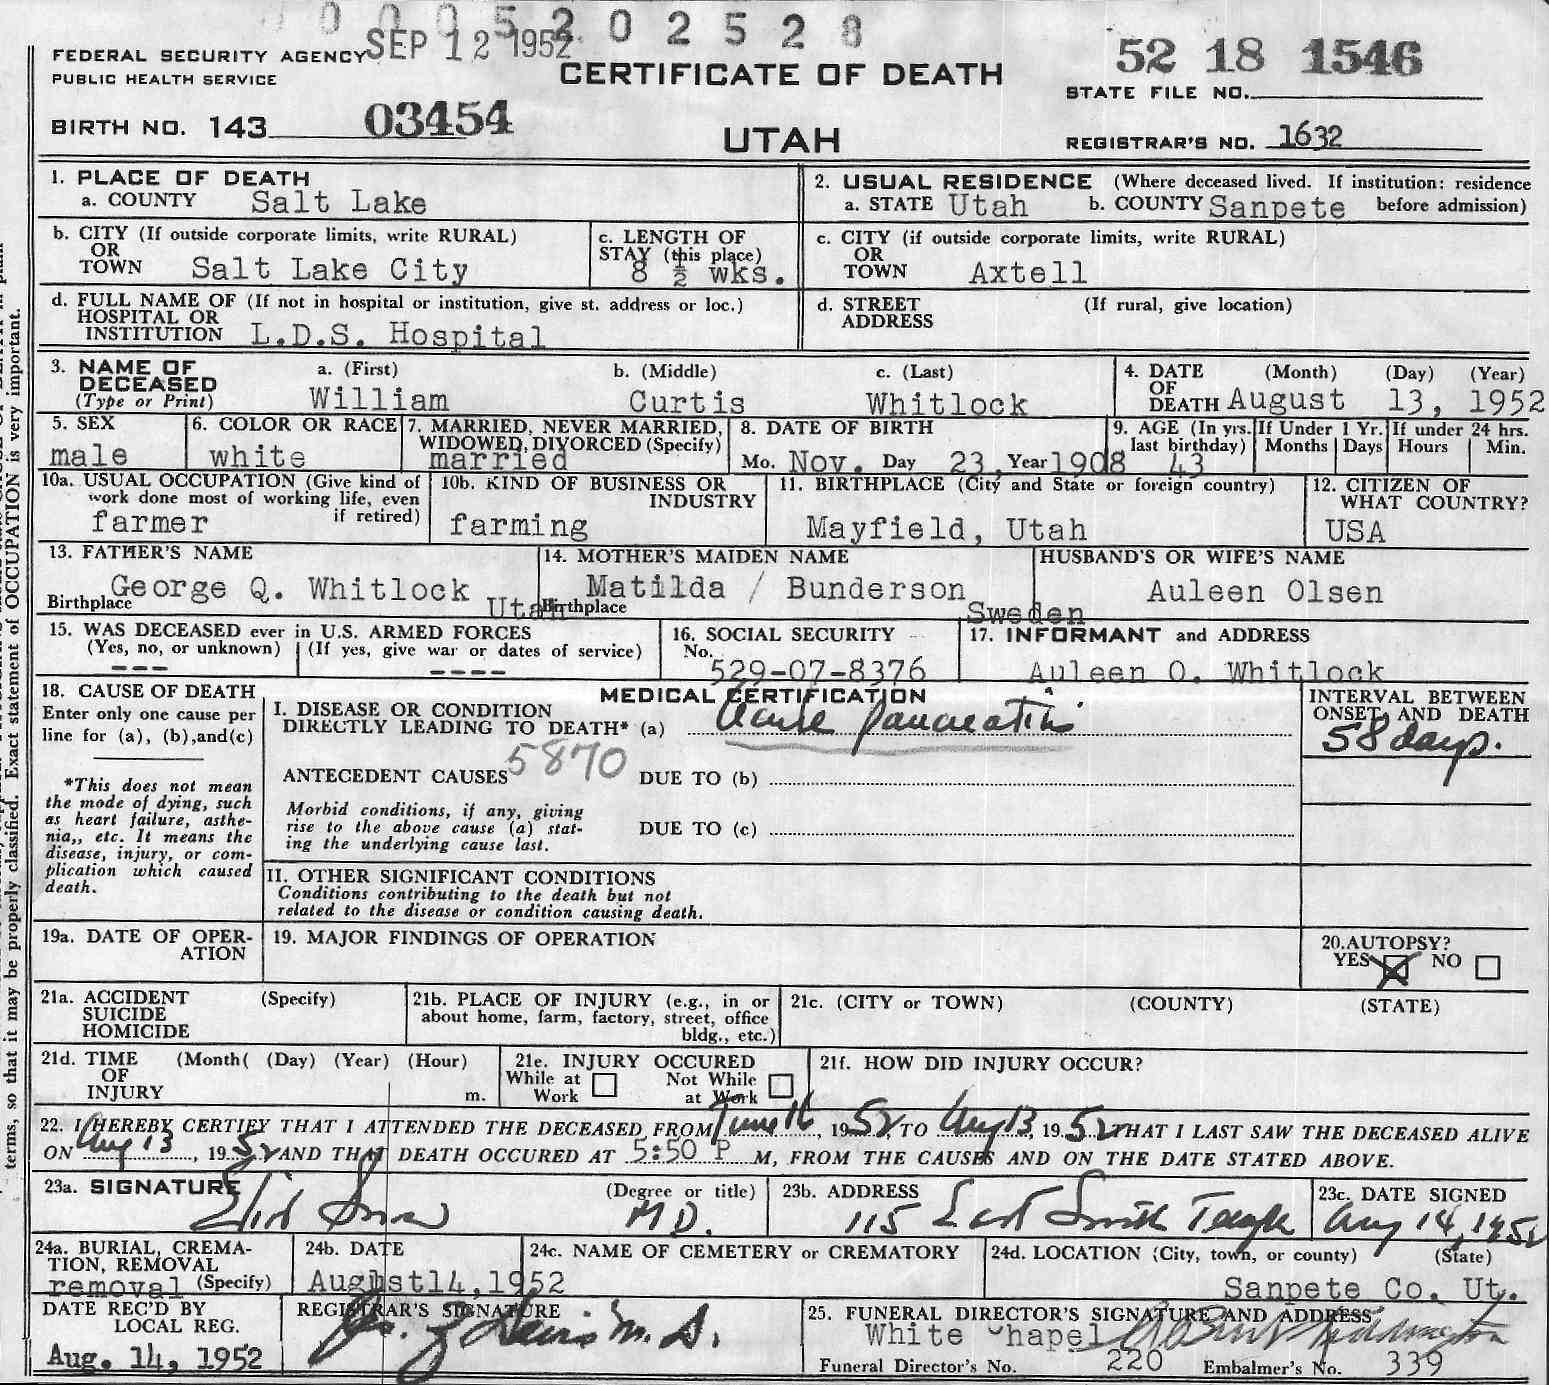 0 0 0 5 2 0 2 5 2 8
FEDERAL SECURITY AGENCY SEP 12 1952
PUBLIC HEALTH SERVICE
CERTIFICATE OF DEATH
52 18 1546
STATE FILE NO.
BIRTH NO. 143 03454
UTAH
REGISTRAR'S NO. 1632
1. PLACE OF DEATH
a. COUNTY Salt Lake
2. USUAL RESIDENCE (Where deceased lived. If institution: residence
a. STATE Utah b. COUNTY Sanpete before admission)
b. CITY (If outside corporate limits, write RURAL)
OR
TOWN Salt Lake City
c. LENGTH OF
STAY (this place)
8 ½ wks.
c. CITY (if outside corporate limits, write RURAL)
OR
TOWN Axtell
d. FULL NAME OF (If not in hospital or institution, give st. address or loc.)
HOSPITAL OR
INSTITUTION L.D.S. Hospital
d. STREET (If rural, give location)
ADDRESS
3. NAME OF
DECEASED
(Type or Print)
a. (First) b. (Middle) c. (Last)
William Curtis Whitlock
4. DATE (Month) (Day) (Year)
OF
DEATH August 13, 1952
5. SEX
male
6. COLOR OR RACE
white
7. MARRIED, NEVER MARRIED,
WIDOWED, DIVORCED (Specify)
married
8. DATE OF BIRTH
Mo. Nov. Day 23, Year 1908
9. AGE (In yrs.
last birthday)
43
If Under 1 Yr.
Months Days
If under 24 hrs.
Hours Min.
10a. USUAL OCCUPATION (Give kind of
work done most of working life, even
if retired)
farmer
10b. KIND OF BUSINESS OR
INDUSTRY
farming
11. BIRTHPLACE (City and State or foreign country)
Mayfield, Utah
12. CITIZEN OF
WHAT COUNTRY?
USA
13. FATHER'S NAME
George Q. Whitlock
Birthplace Utah
14. MOTHER'S MAIDEN NAME
Matilda / Bunderson
Birthplace Sweden
HUSBAND'S OR WIFE'S NAME
Auleen Olsen
15. WAS DECEASED ever in U.S. ARMED FORCES
(Yes, no, or unknown) (If yes, give war or dates of service)
--- ----
16. SOCIAL SECURITY
No.
529-07-8376
17. INFORMANT and ADDRESS
Auleen O. Whitlock
18. CAUSE OF DEATH
Enter only one cause per
line for (a), (b),and(c)
*This does not mean
the mode of dying, such
as heart failure, asthe-
nia,, etc. It means the
disease, injury, or com-
plication which caused
death.
MEDICAL CERTIFICATION
I. DISEASE OR CONDITION
DIRECTLY LEADING TO DEATH* (a) Acute pancreatitis
5870
ANTECEDENT CAUSES DUE TO (b)
Morbid conditions, if any, giving
rise to the above cause (a) stat-
ing the underlying cause last.
DUE TO (c)
INTERVAL BETWEEN
ONSET AND DEATH
58 days.
II. OTHER SIGNIFICANT CONDITIONS
Conditions contributing to the death but not
related to the disease or condition causing death.
19a. DATE OF OPER-
ATION
19. MAJOR FINDINGS OF OPERATION
20.AUTOPSY?
YES NO
21a. ACCIDENT (Specify)
SUICIDE
HOMICIDE
21b. PLACE OF INJURY (e.g., in or
about home, farm, factory, street, office
bldg., etc.)
21c. (CITY or TOWN) (COUNTY) (STATE)
21d. TIME (Month( (Day) (Year) (Hour)
OF
INJURY m.
21e. INJURY OCCURED
While at Work
Not While at Work
21f. HOW DID INJURY OCCUR?
22. I HEREBY CERTIFY THAT I ATTENDED THE DECEASED FROM June 16, 1952, TO Aug 13, 1952 THAT I LAST SAW THE DECEASED ALIVE
ON Aug 13, 1952 AND THAT DEATH OCCURED AT 5:50 P M, FROM THE CAUSES AND ON THE DATE STATED ABOVE.
23a. SIGNATURE (Degree or title)
M D.
23b. ADDRESS
115 East South Temple
23c. DATE SIGNED
Aug 14, 1952
24a. BURIAL, CREMA-
TION, REMOVAL
removal (Specify)
24b. DATE
August 14, 1952
24c. NAME OF CEMETERY or CREMATORY
24d. LOCATION (City, town, or county) (State)
Sanpete Co. Ut.
DATE REC'D BY
LOCAL REG.
Aug. 14, 1952
REGISTRAR'S SIGNATURE
M. D.
25. FUNERAL DIRECTOR'S SIGNATURE AND ADDRESS
White Chapel
Funeral Director's No. 220 Embalmer's No. 339
terms, so that it may be properly classified. Exact statement of OCCUPATION is very important.